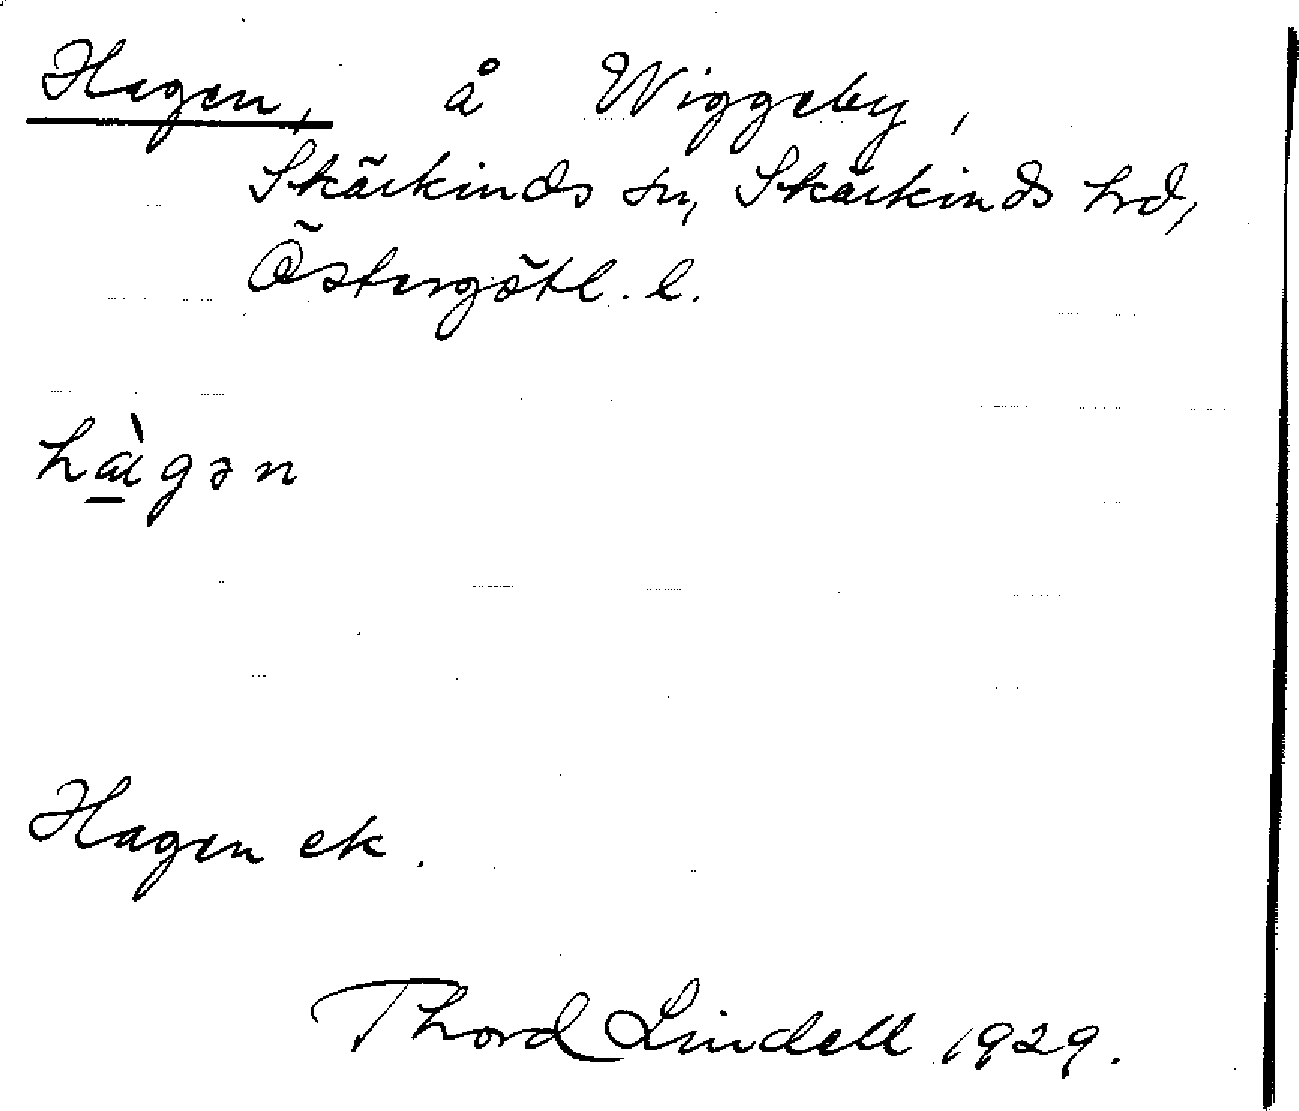 Hagen, å Wiggeby,
Skärkinds sn, Skärkinds hrd,
Östergötl. l.
hàgən
Hagen ek.
Thord Lindell 1929.